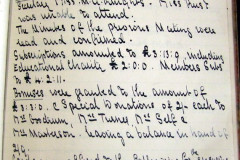 was unable to attend.
The Minutes of the previous Meeting were
read and confirmed.
Subscriptions amounted to £3:13:0, including
Educational Charity £2:0:0. Members Subs
to £4.2.11.
Bonuses were granted to the amount of
2 Special Donations of 2/- each to
Mrs Goodrum, Mrs Turney, Mrs Self &
having a balance in hand of